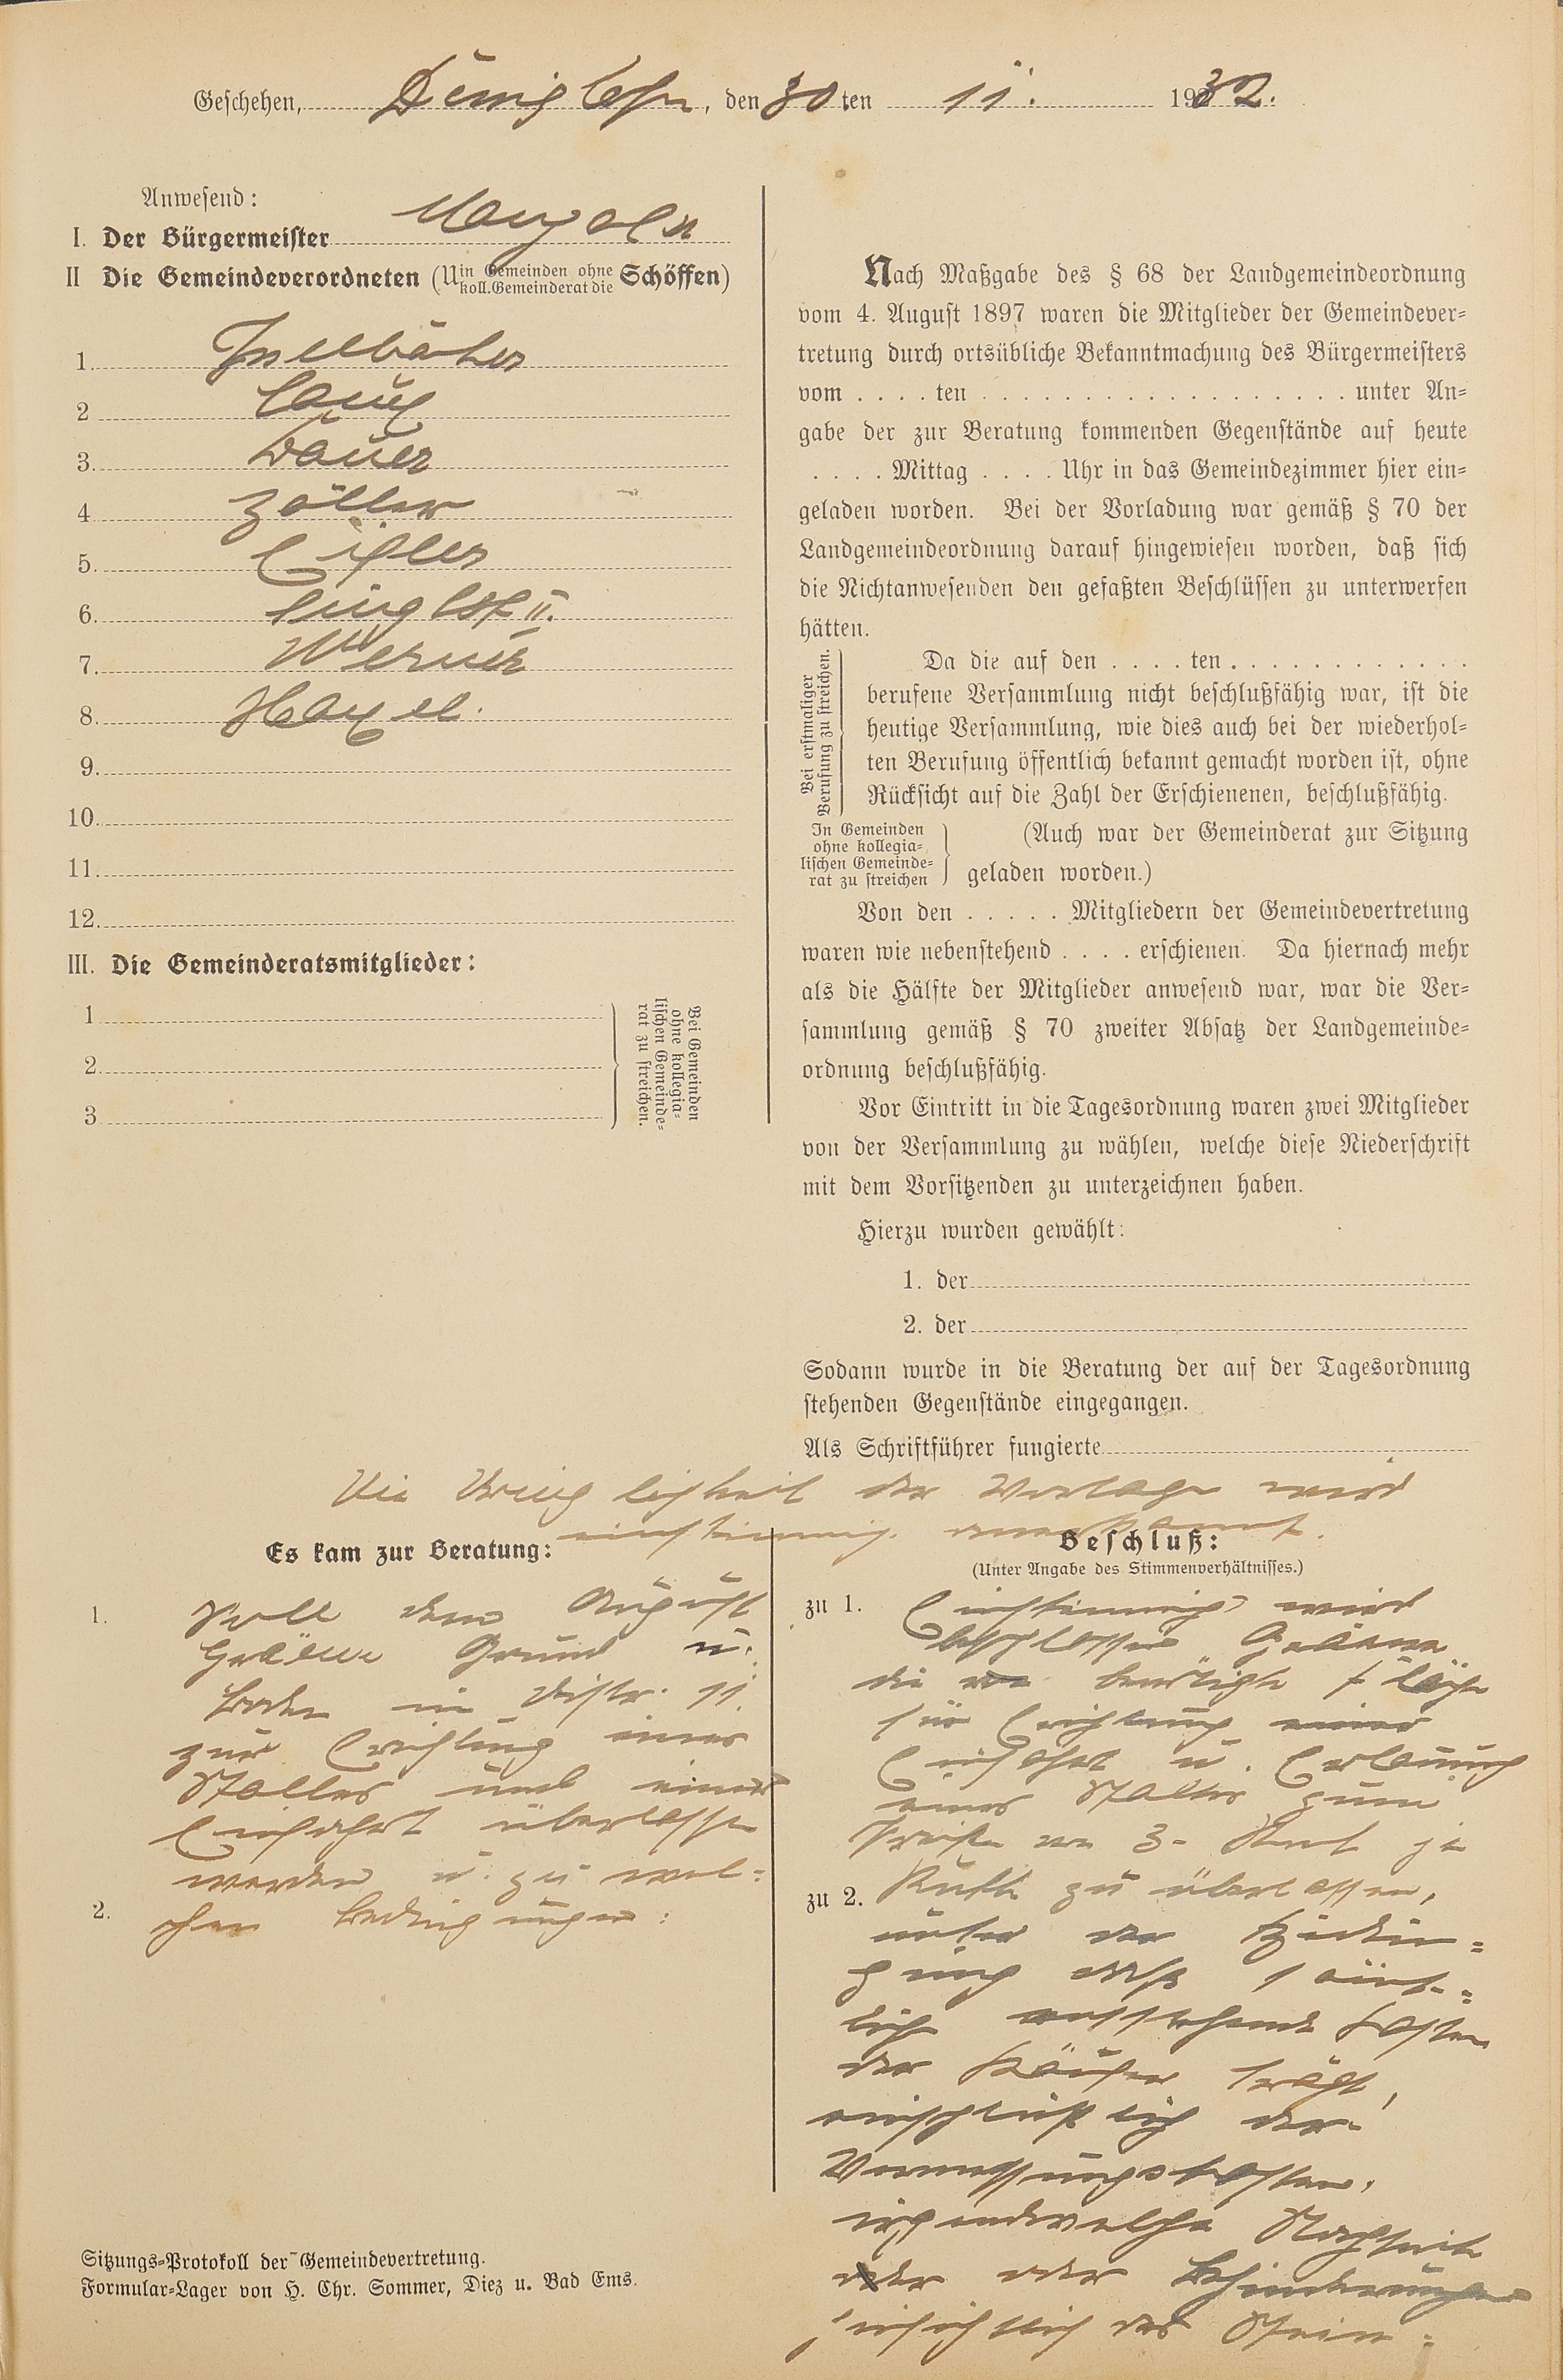 Geschehen, den 30ten 11. 1932.
Anwesend:
I. Der Bürgermeister
II Die Gemeindeverordneten (U in Gemeinden ohne koll. Gemeinderat die Schöffen)
1.
2
3. Dauer
4 Zöller
5.
6. II.
7. Werner
8.
9.
10.
11.
12.
III. Die Gemeinderatsmitglieder:
1
2.
3
Bei Gemeinden
ohne kollegia-
lischen Gemeinde-
rat zu streichen.
Nach Maßgabe des § 68 der Landgemeindeordnung
vom 4. August 1897 waren die Mitglieder der Gemeindever-
tretung durch ortsübliche Bekanntmachung des Bürgermeisters
vom . . . . ten . . . . . . . . . . . . . . . . . . unter An-
gabe der zur Beratung kommenden Gegenstände auf heute
. . . . Mittag . . . . Uhr in das Gemeindezimmer hier ein-
geladen worden. Bei der Vorladung war gemäß § 70 der
Landgemeindeordnung darauf hingewiesen worden, daß sich
die Nichtanwesenden den gefaßten Beschlüssen zu unterwerfen
hätten.
Bei erstmaliger
Berufung zu streichen.
Da die auf den . . . . ten . . . . . . . . . . . .
berufene Versammlung nicht beschlußfähig war, ist die
heutige Versammlung, wie dies auch bei der wiederhol-
ten Berufung öffentlich bekannt gemacht worden ist, ohne
Rücksicht auf die Zahl der Erschienenen, beschlußfähig.
In Gemeinden
ohne kollegia-
lischen Gemeinde-
rat zu streichen
(Auch war der Gemeinderat zur Sitzung
geladen worden.)
Von den . . . . . Mitgliedern der Gemeindevertretung
waren wie nebenstehend . . . . erschienen. Da hiernach mehr
als die Hälfte der Mitglieder anwesend war, war die Ver-
sammlung gemäß § 70 zweiter Absatz der Landgemeinde-
ordnung beschlußfähig.
Vor Eintritt in die Tagesordnung waren zwei Mitglieder
von der Versammlung zu wählen, welche diese Niederschrift
mit dem Vorsitzenden zu unterzeichnen haben.
Hierzu wurden gewählt:
1. der
2. der
Sodann wurde in die Beratung der auf der Tagesordnung
stehenden Gegenstände eingegangen.
Als Schriftführer fungierte
Die Dringlichkeit der Vorlage wird
einstimmig anerkannt.
Es kam zur Beratung:
1. Soll dem August
Grund u.
Boden im Distr. 11.
zur Errichtung eines
Stalles und einer
Einfahrt überlassen
werden u. zu wel-
2. chen Bedingungen:
Beschluß:
(Unter Angabe des Stimmenverhältnisses.)
zu 1. Einstimmig wird
beschlossen
die benötigte Fläche
für Errichtung einer
Einfahrt u. Erbauung
eines Stalles zum
Preise von 3- Mark je
zu 2. Rute zu überlassen,
unter der Bedin-
gung daß sämt-
lich entstehende Kosten
der Käufer trägt,
einschließlich der
Vermessungskosten.
irgendwelche Nachteile
oder
hinsichtlich des Stein-
Sitzungs-Protokoll der Gemeindevertretung.
Formular-Lager von H. Chr. Sommer, Diez u. Bad Ems.